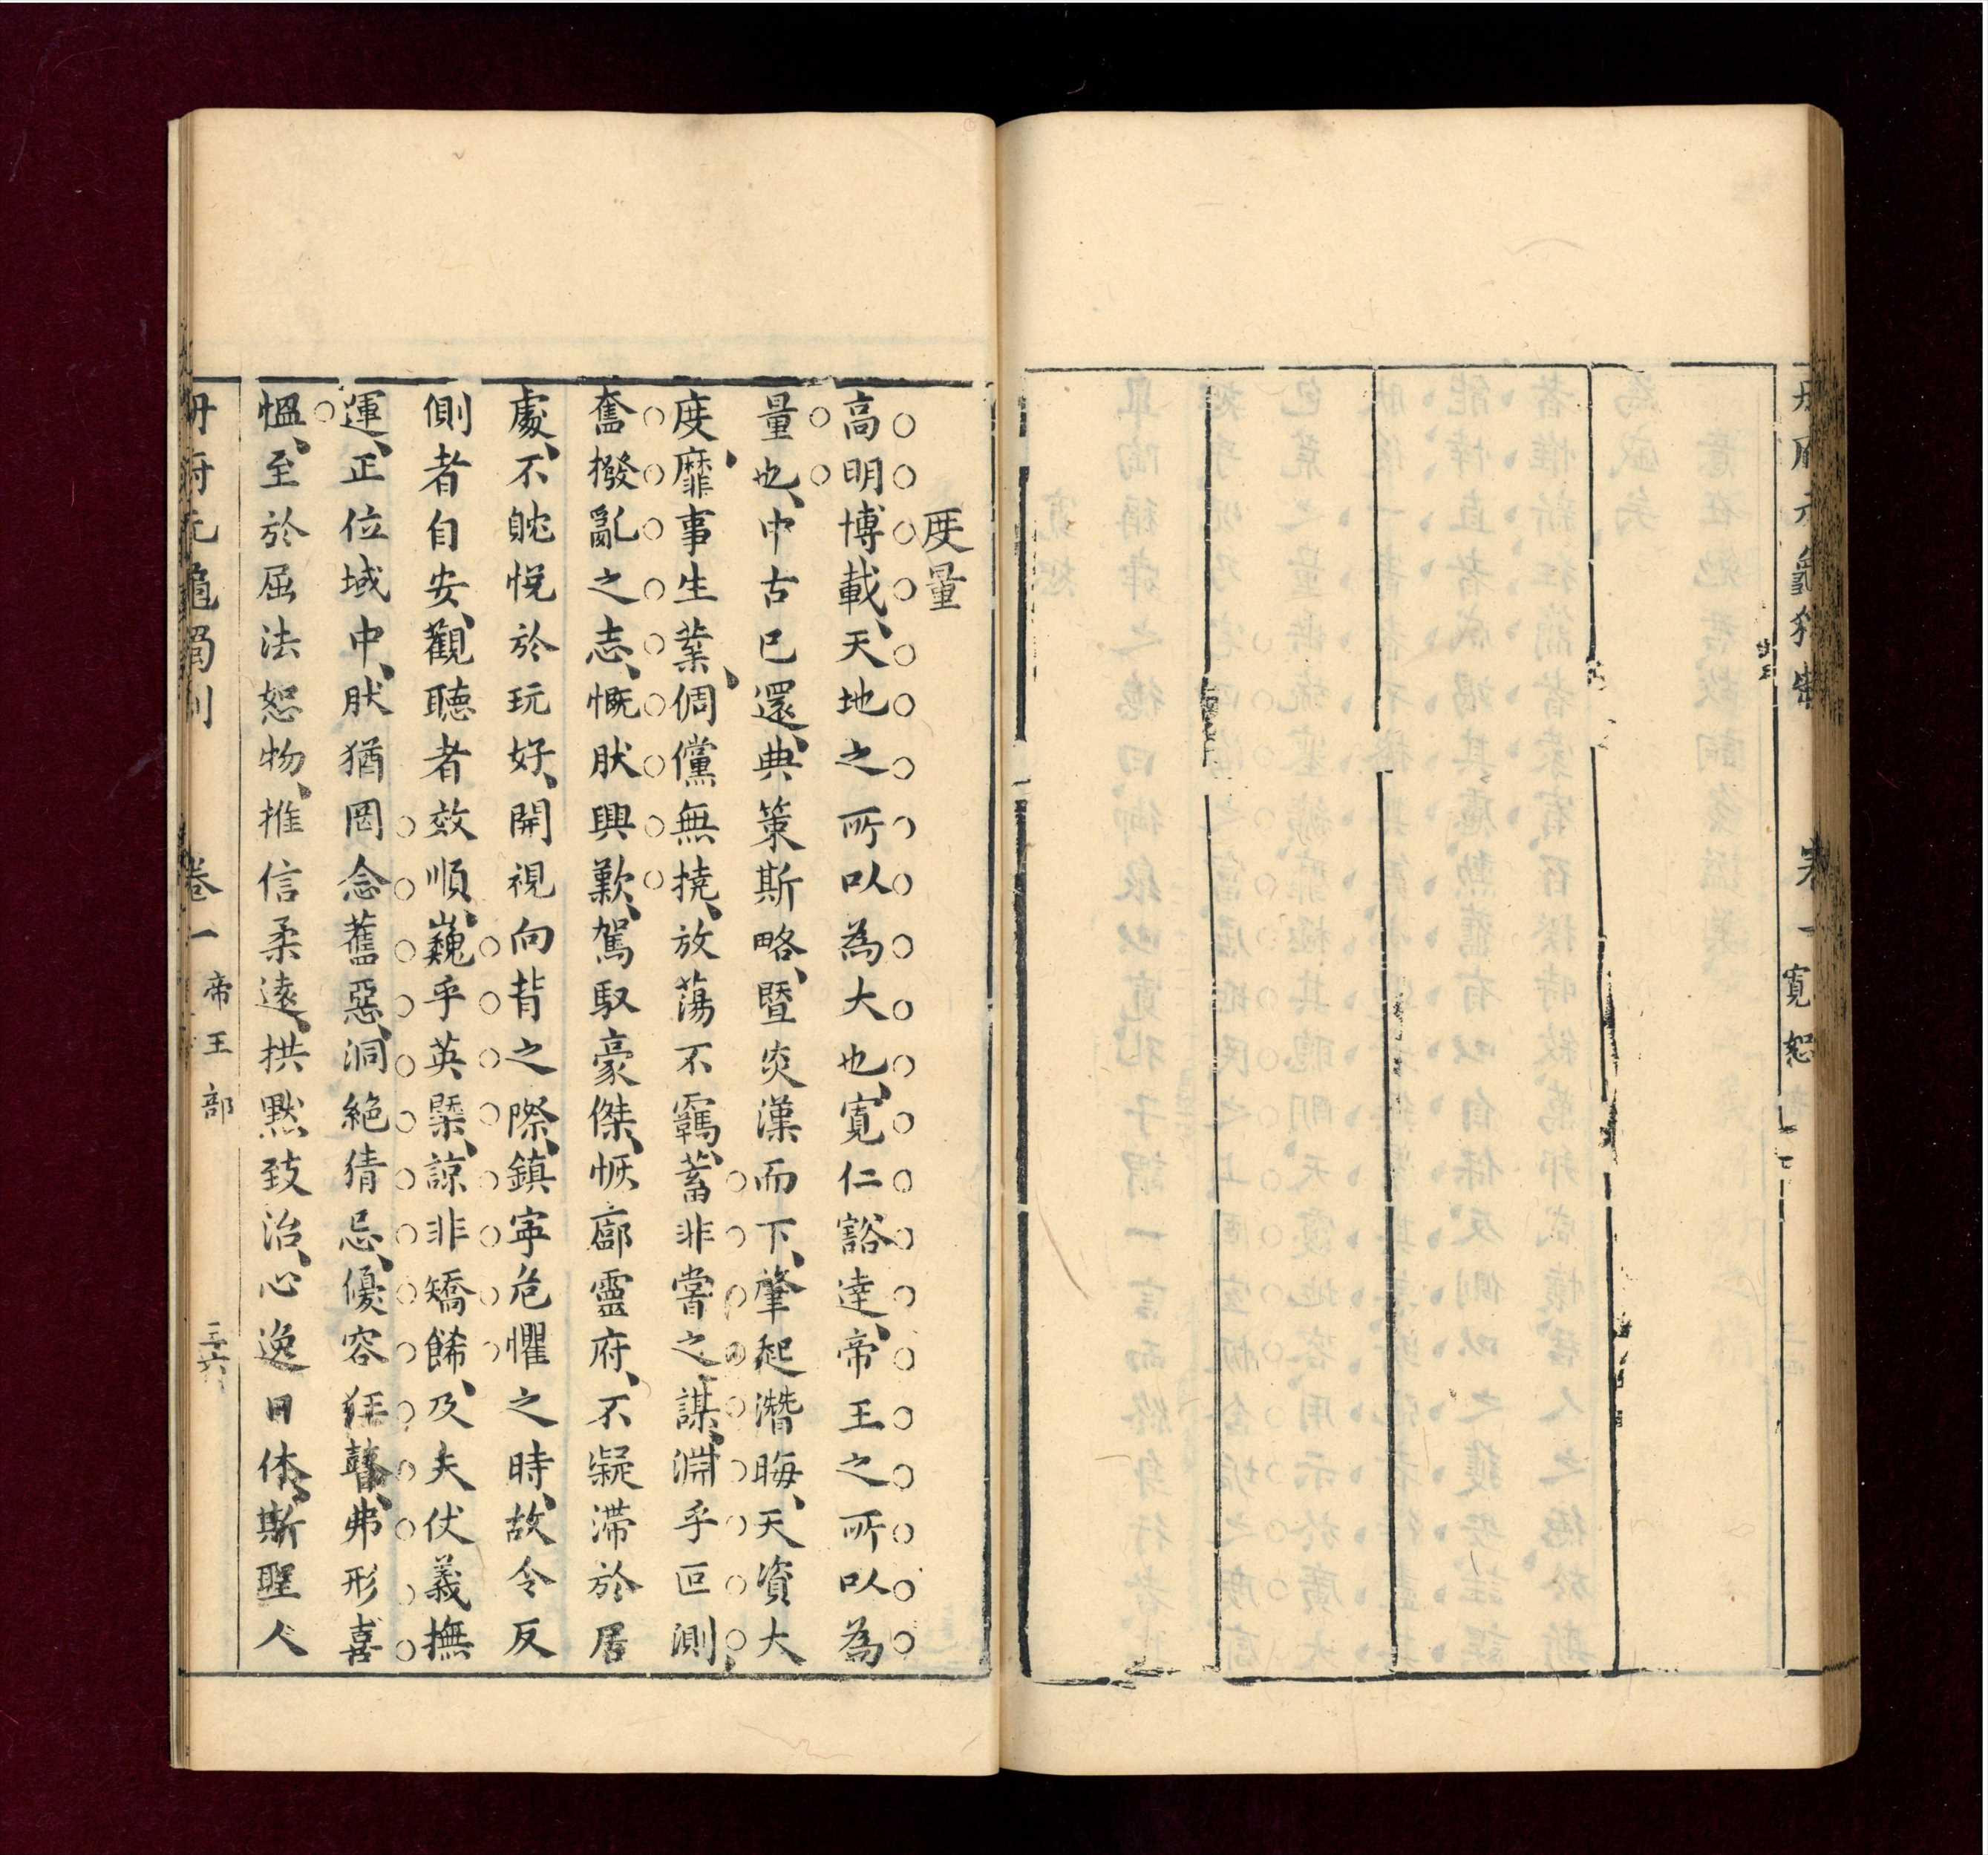 寬恕
卷一
度量
高明博載天地之所以為大也寬仁豁達帝王之所以為
量也中古已還典策斯略暨炎漢而下肇起潛晦天資大
度靡事生業倜儻無撓放蕩不羈蓄非嘗之謀淵乎叵測
奮撥亂之志慨肰興歎駕馭豪傑恢廓靈府不凝滯於居
處不眈悅於玩好開視向背之際鎮寧危懼之時故令反
側者自安觀聽者效順巍乎英槩諒非矯餙及夫伏義撫
運正位域中肰猶罔念舊惡洞絕猜忌優容狂瞽弗形喜
慍至於屈法恕物推信柔遠拱默致治心逸日休斯聖人
冊府元龜獨制
卷一
帝王部
三六